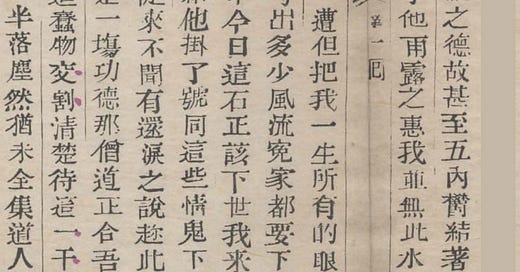 之德故甚至五內欝結著
他雨露之惠我並無此水
第一囘
遭但把我一生所有的眼
出多少風流冤家都要下
今日這石正該下世我來
他掛了號同這些情鬼下
從來不聞有還淚之說趁此
是一塲功德那僧道正合吾
這蠢物交割清楚待這一干
半落塵然猶未全集道人